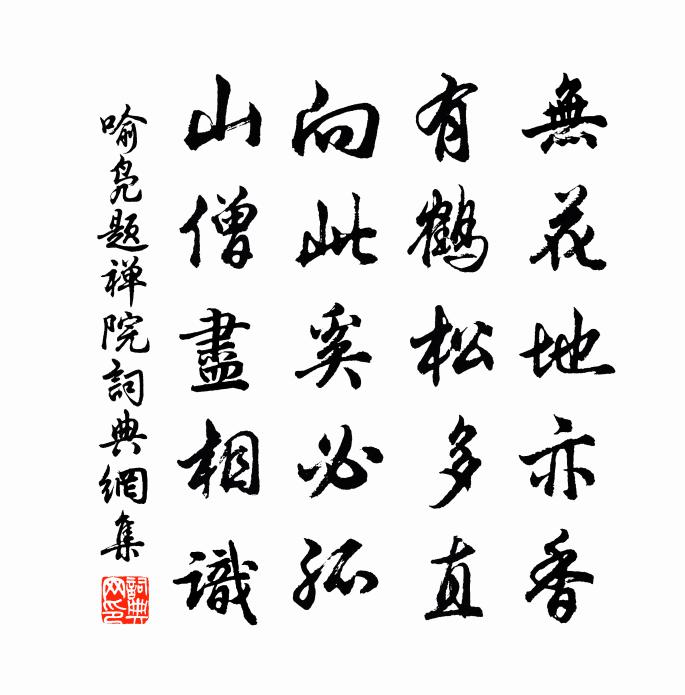 無花地亦香
有鶴松多直
向此奚必孤
山僧盡相識
喻凫题禅院詞典網集
詞典网印